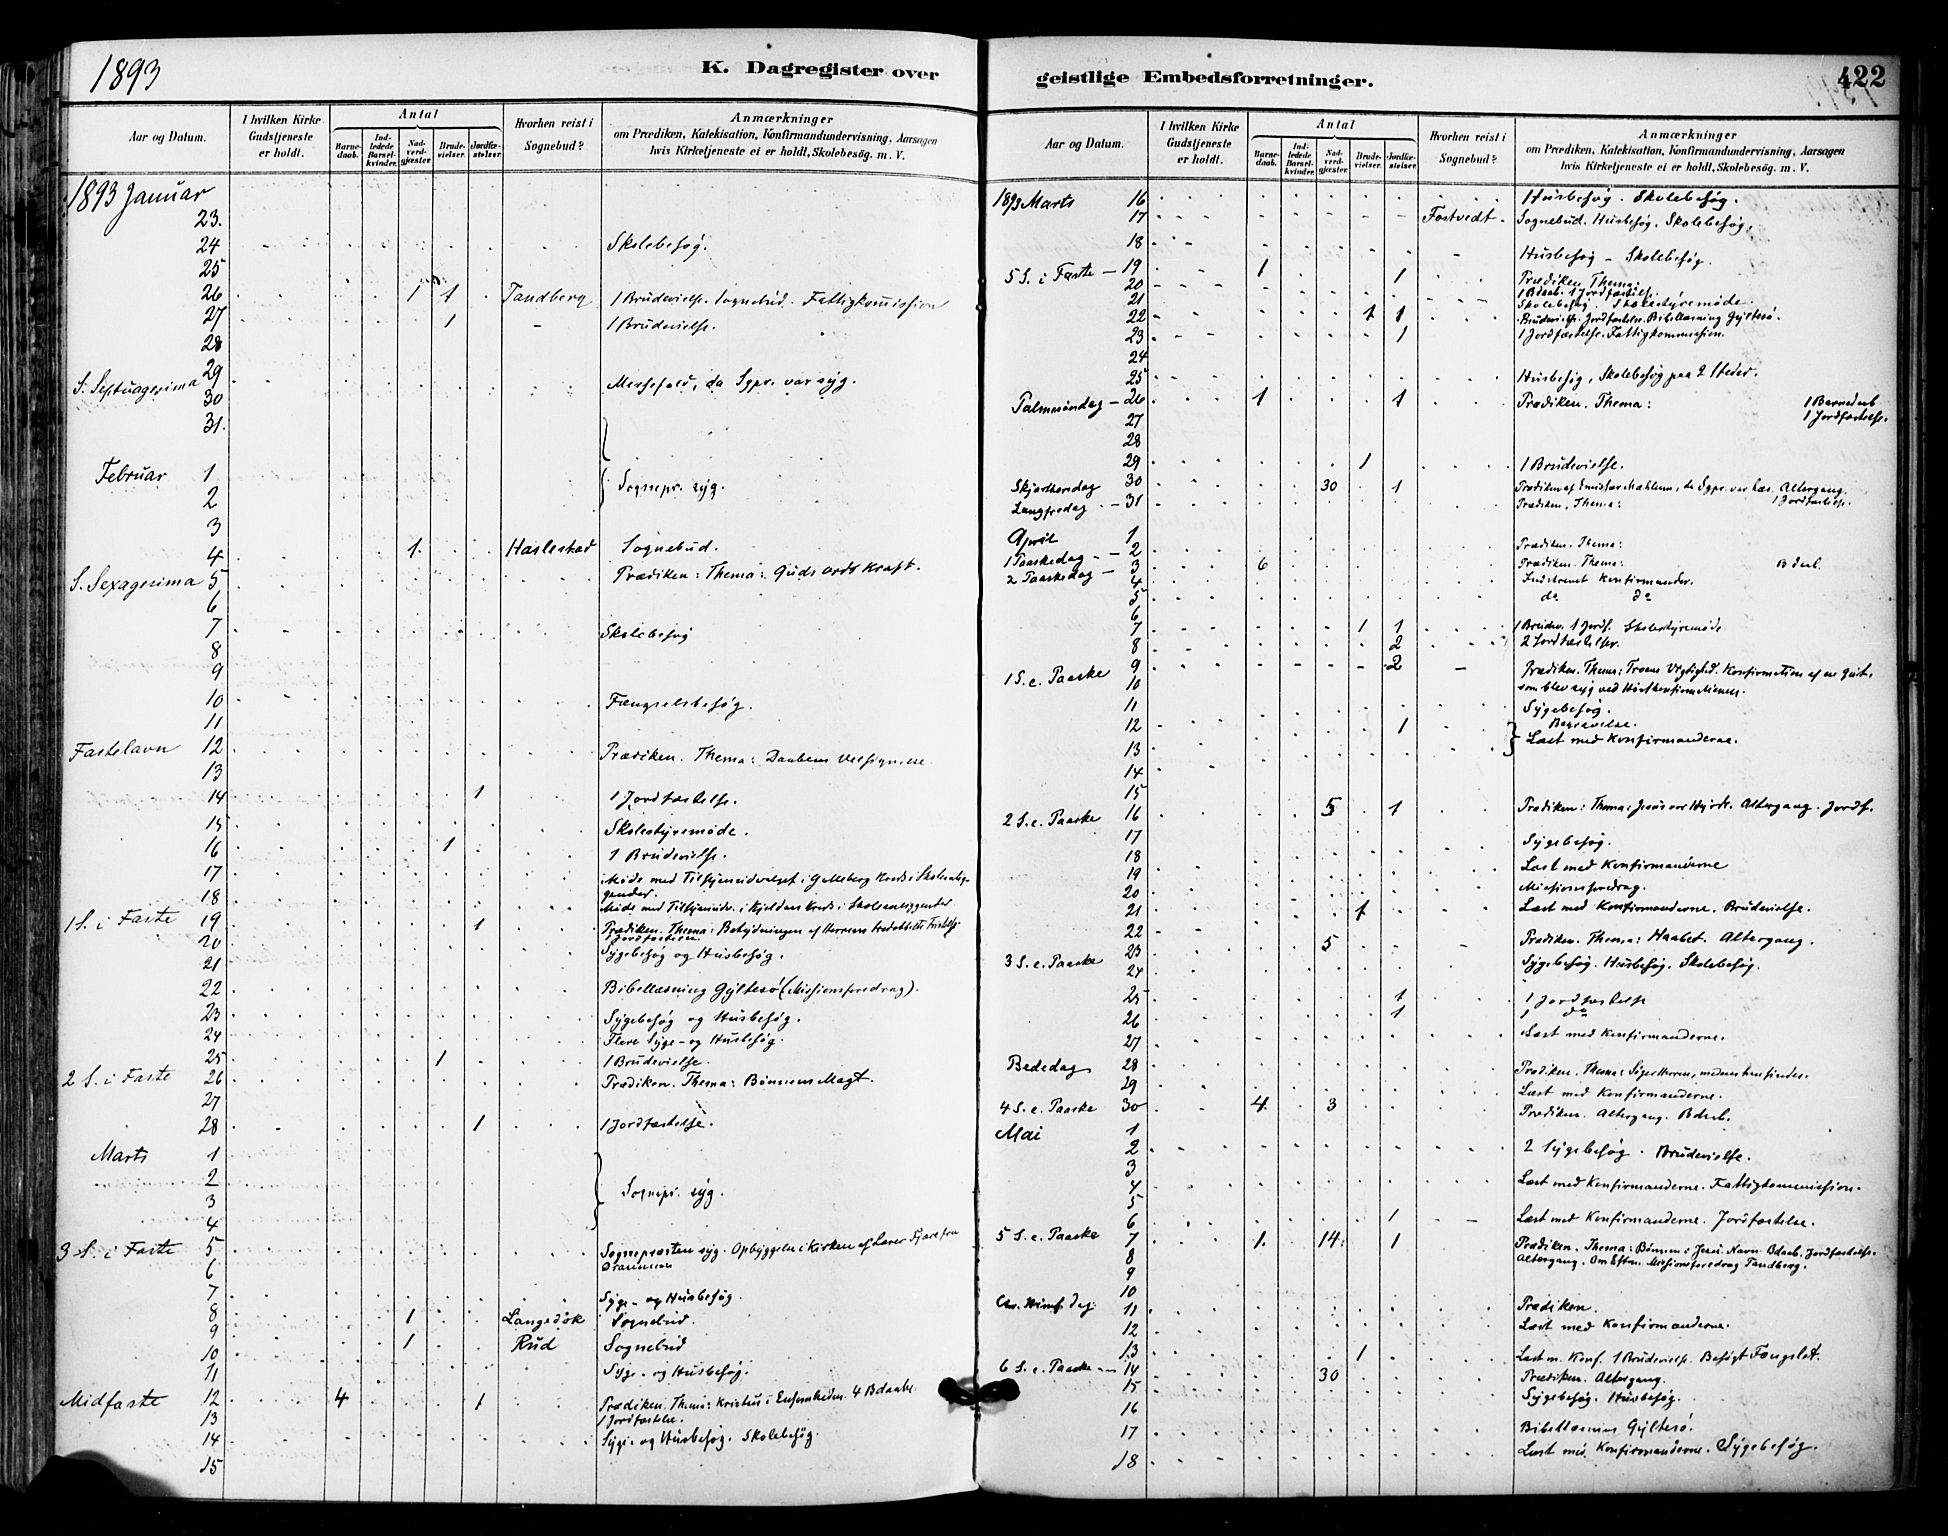 1893
K. Dagregister over
Aar og Datum.
I hvilken Kirke Gudstjeneste er holdt.
Antal
Barnedaab.
Indledede Barselkvinder.
Nadverdgjester
Brudevielser.
Jordfæstelser.
Hvorhen reist i Sognebud?
Anmærkninger
om Prædiken, Katekisation, Konfirmandundervisning, Aarsagen
hvis Kirketjeneste ei er holdt, Skolebesög. m. V.
1893 Januar
23.
24 Skolebesøg.
25
26 1 1 Tandberg 1 Brudevielse. Sognebud. Fattigkommission
27 1 1 Brudevielse.
28
S. Septuagesima 29 Messefald, da Sgpr. var syg.
30
31.
Februar 1
2 Sognepr. syg.
3
4 1. Haslestad Sognebud.
S. Sexagesima 5 Prædiken: Thema: Guds ords Kraft.
6
7 Skolebesøg
8
9
10 Fængselsbesøg.
11
Fastelavn 12 Prædiken. Thema: Daabens Velsignelse
13
14 1 1 Jordfæstelse.
15 Skolestyremøde.
16 1 1 Brudevielse.
17 Møde med Tilsynsudvalget i Galleberg Kreds i Skoleanliggender.
18 Møde med Tilsynsudv. i Kjeldaas Kreds i Skoleanliggender
1 S. i Faste 19 1 Prædiken. Thema: Betydningen af Herrens
1 Jordfæstelse.
20 Sygebesøg og Husbesøg.
21
22 Bibellæsning Gyltesø (Missionsforedrag).
23 Sygebesøg og Husbesøg.
24 Flere Syge- og Husbesøg.
25 1 1 Brudevielse.
2 S. i Faste 26 Prædiken. Thema: Bønnens Magt.
27
28 1 1 Jordfæstelse.
Marts 1
2 Sognepr. syg.
3
4
3 S. i Faste 5 Sognepræsten syg. Opbyggelse i Kirken af Lærer Fjære fra
Drammen
6
7 Syge- og Husbesøg.
8 1 Langsdøk Sognebud.
9 1 Rud Sognebud
10
11 Syge- og Husbesøg.
Midfaste 12 4 1 Prædiken. Thema: Kristus i Ensomheden. 4 Bdaabe.
1 Jordfæstelse.
13
14 Syge- og Husbesøg. Skolebesøg.
15
geistlige Embedsforretninger.
422
Aar og Datum.
I hvilken Kirke Gudstjeneste er holdt.
Antal
Barnedaab.
Indledede Barselkvinder.
Nadverdgjester.
Brudevielser.
Jordfæstelser.
Hvorhen reist i Sognebud?
Anmærkninger
om Prædiken, Katekisation, Konfirmandundervisning, Aarsagen
hvis Kirketjeneste ei er holdt, Skolebesög. m. V.
1893 Marts 16 Husbesøg. Skolebesøg.
17 Fostvedt. Sognebud. Husbesøg. Skolebesøg.
18 Husbesøg - Skolebesøg.
5 S. i Faste 19 1 1 Prædiken Thema:
1 Bdaab. 1 Jordfæstelse.
20
21 Skolebesøg. Skolestyremøde.
22 1 1 Brudevielse. Jordfæstelse. Bibellæsning Gyltesø.
23 1 1 Jordfæstelse. Fattigkommission.
24
25 Husbesøg, Skolebesøg paa 2 Steder.
Palmesøndag 26 1 1 Prædiken. Thema: 1 Barnedaab
1 Jordfæstelse.
27
28
29 1 1 Brudevielse.
Skjærthorsdag 30 30 1 Prædiken af Emissær Mæhlum, da Sgpr. var hæs. Altergang.
1 Jordfæstelse.
Langfredag 31 Prædiken. Thema:
April 1
1 Paaskedag 2 Prædiken. Thema:
2 Paaskedag 3 6 Prædiken. Thema: Bdaab.
4 Indskrevet Konfirmander.
5 do do
6
7 1 1 1 Brudev. 1 Jordf. Skolestyremøde
8 2 2 Jordfæstelser.
1 S. e. Paaske 9 2 Prædiken. Thema: Troens Vigtighed. Konfirmation af en Gut,
som blev syg ved Høstkonfirmationen.
10
11 Sygebesøg.
12 1 Begravelse.
13 Læst med Konfirmanderne.
14
15
2 S. e. Paaske 16 5 1 Prædiken: Thema: Jesus vor Hyrde. Altergang. Jordf.
17 Sygebesøg.
18 Læst med Konfirmanderne
19
20 Missionsforedrag.
21 1 Læst med Konfirmanderne. Brudevielse.
22
3 S. e. Paaske 23 5 Prædiken. Thema: Haabet. Altergang.
24 Sygebesøg. Husbesøg. Skolebesøg.
25 1 1 Jordfæstelse
26 1 1 do
27 Læst med Konfirmanderne.
Bededag 28 Prædiken. Thema: Søger Herren, medens han findes.
29 Læst med Konfirmanderne.
4 S. e. Paaske 30 4. 3 Prædiken. Altergang. Bdaab.
Mai 1
2 2 Sygebesøg. Brudevielse.
3
4 Læst med Konfirmanderne. Fattigkommission.
5
6 1 Læst med Konfirmanderne. Jordfæstelse.
5 S. e. Paaske 7 1. 14. 1 Prædiken. Thema: Bønnen i Jesu Navn. Bdaab. Jordfæstelse.
Altergang. Om Eftm. Missionsforedrag Tandberg.
8
9
10
Chr. Himf. Dag 11 Prædiken.
12 Læst med Konfirmanderne.
13 1 Læst m. Konf. 1 Brudevielse. Besøgt Fængslet.
6 S. e. Paaske 14 30 Prædiken. Altergang.
15 Sygebesøg. Husbesøg.
16
17 Bibellæsning Gyltesø.
18 Læst med Konfirmanderne. Sygebesøg.